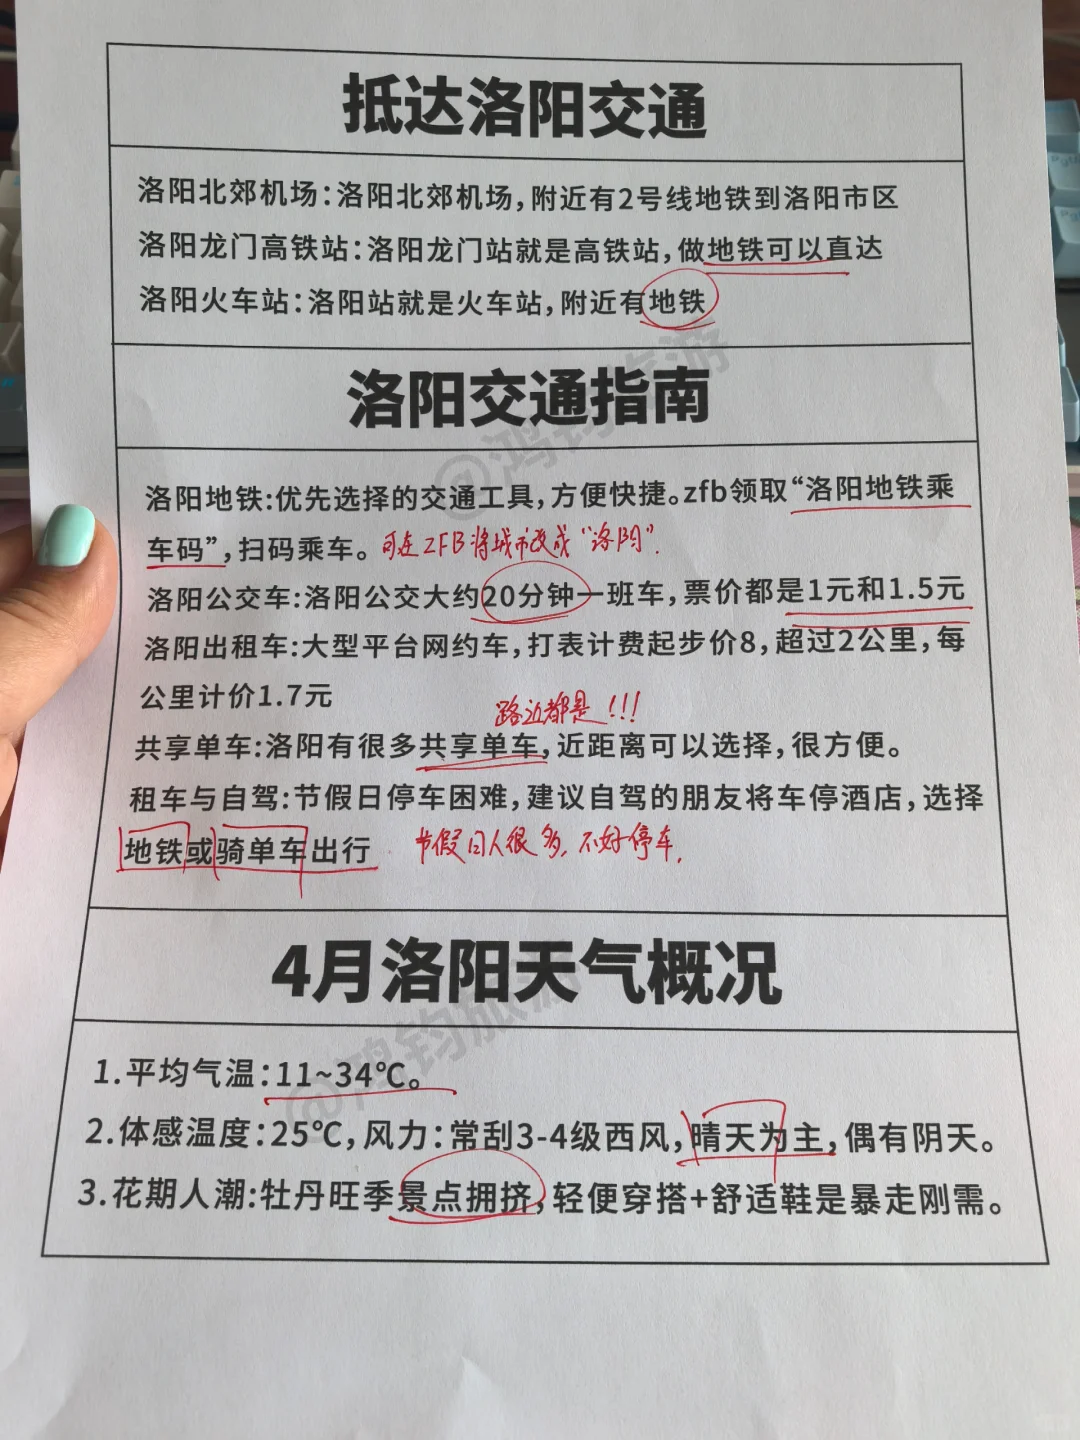 抵达洛阳交通
洛阳北郊机场：洛阳北郊机场，附近有2号线地铁到洛阳市区
洛阳龙门高铁站：洛阳龙门站就是高铁站，做地铁可以直达
洛阳火车站：洛阳站就是火车站，附近有地铁
洛阳交通指南
@鸿钧旅游
洛阳地铁：优先选择的交通工具，方便快捷。zfb领取“洛阳地铁乘
车码”，扫码乘车。可在ZFB将城市改成“洛阳”.
洛阳公交车：洛阳公交大约20分钟一班车，票价都是1元和1.5元
洛阳出租车：大型平台网约车，打表计费起步价8，超过2公里，每
公里计价1.7元
路边都是！！！
共享单车：洛阳有很多共享单车，近距离可以选择，很方便。
租车与自驾：节假日停车困难，建议自驾的朋友将车停酒店，选择
地铁或骑单车出行 节假日人很多，不好停车.
4月洛阳天气概况
@鸿钧旅游
1.平均气温：11~34℃。
2.体感温度：25℃，风力：常刮3-4级西风，晴天为主，偶有阴天。
3.花期人潮：牡丹旺季景点拥挤，轻便穿搭+舒适鞋是暴走刚需。